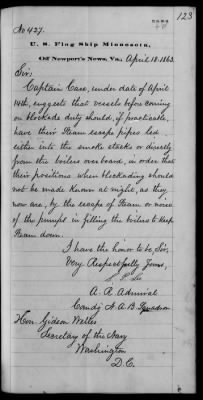 123
No 427.
U. S. Flag Ship Minnesota,
Off Newport's News, Va., April 18. 1863.
Sir;
Captain Case, under date of April
14th, suggests that vessels before coming
on blockade duty should, if practicable,
have their steam escape pipes led
either into the smoke stacks or directly
from the boilers overboard, in order that
their positions when blockading should
not be made known at night, as they
now are, by the escape of steam or noise
of the pumps in filling the boilers to keep
steam down.
I have the honor to be, Sir,
Very Respectfully Yours,
S. P. Lee
A. R. Admiral
Comdg N. A. B. Squadron
Hon. Gideon Welles
Secretary of the Navy
Washington
D.C.